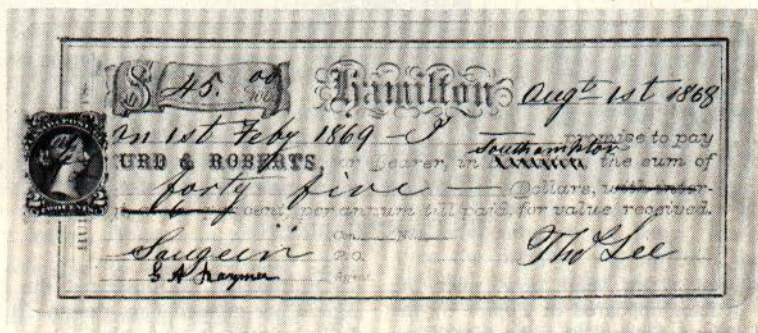 $ 45. 00/100 Hamilton Augt 1st 1868
On 1st Feby 1869 - I promise to pay
URD & ROBERTS, or Bearer, in Southampton the sum of
forty five — Dollars, with inter-
cent, per annum till paid, for value received.
Con. No.
Saugeen P.O. Thos Lee
Agent